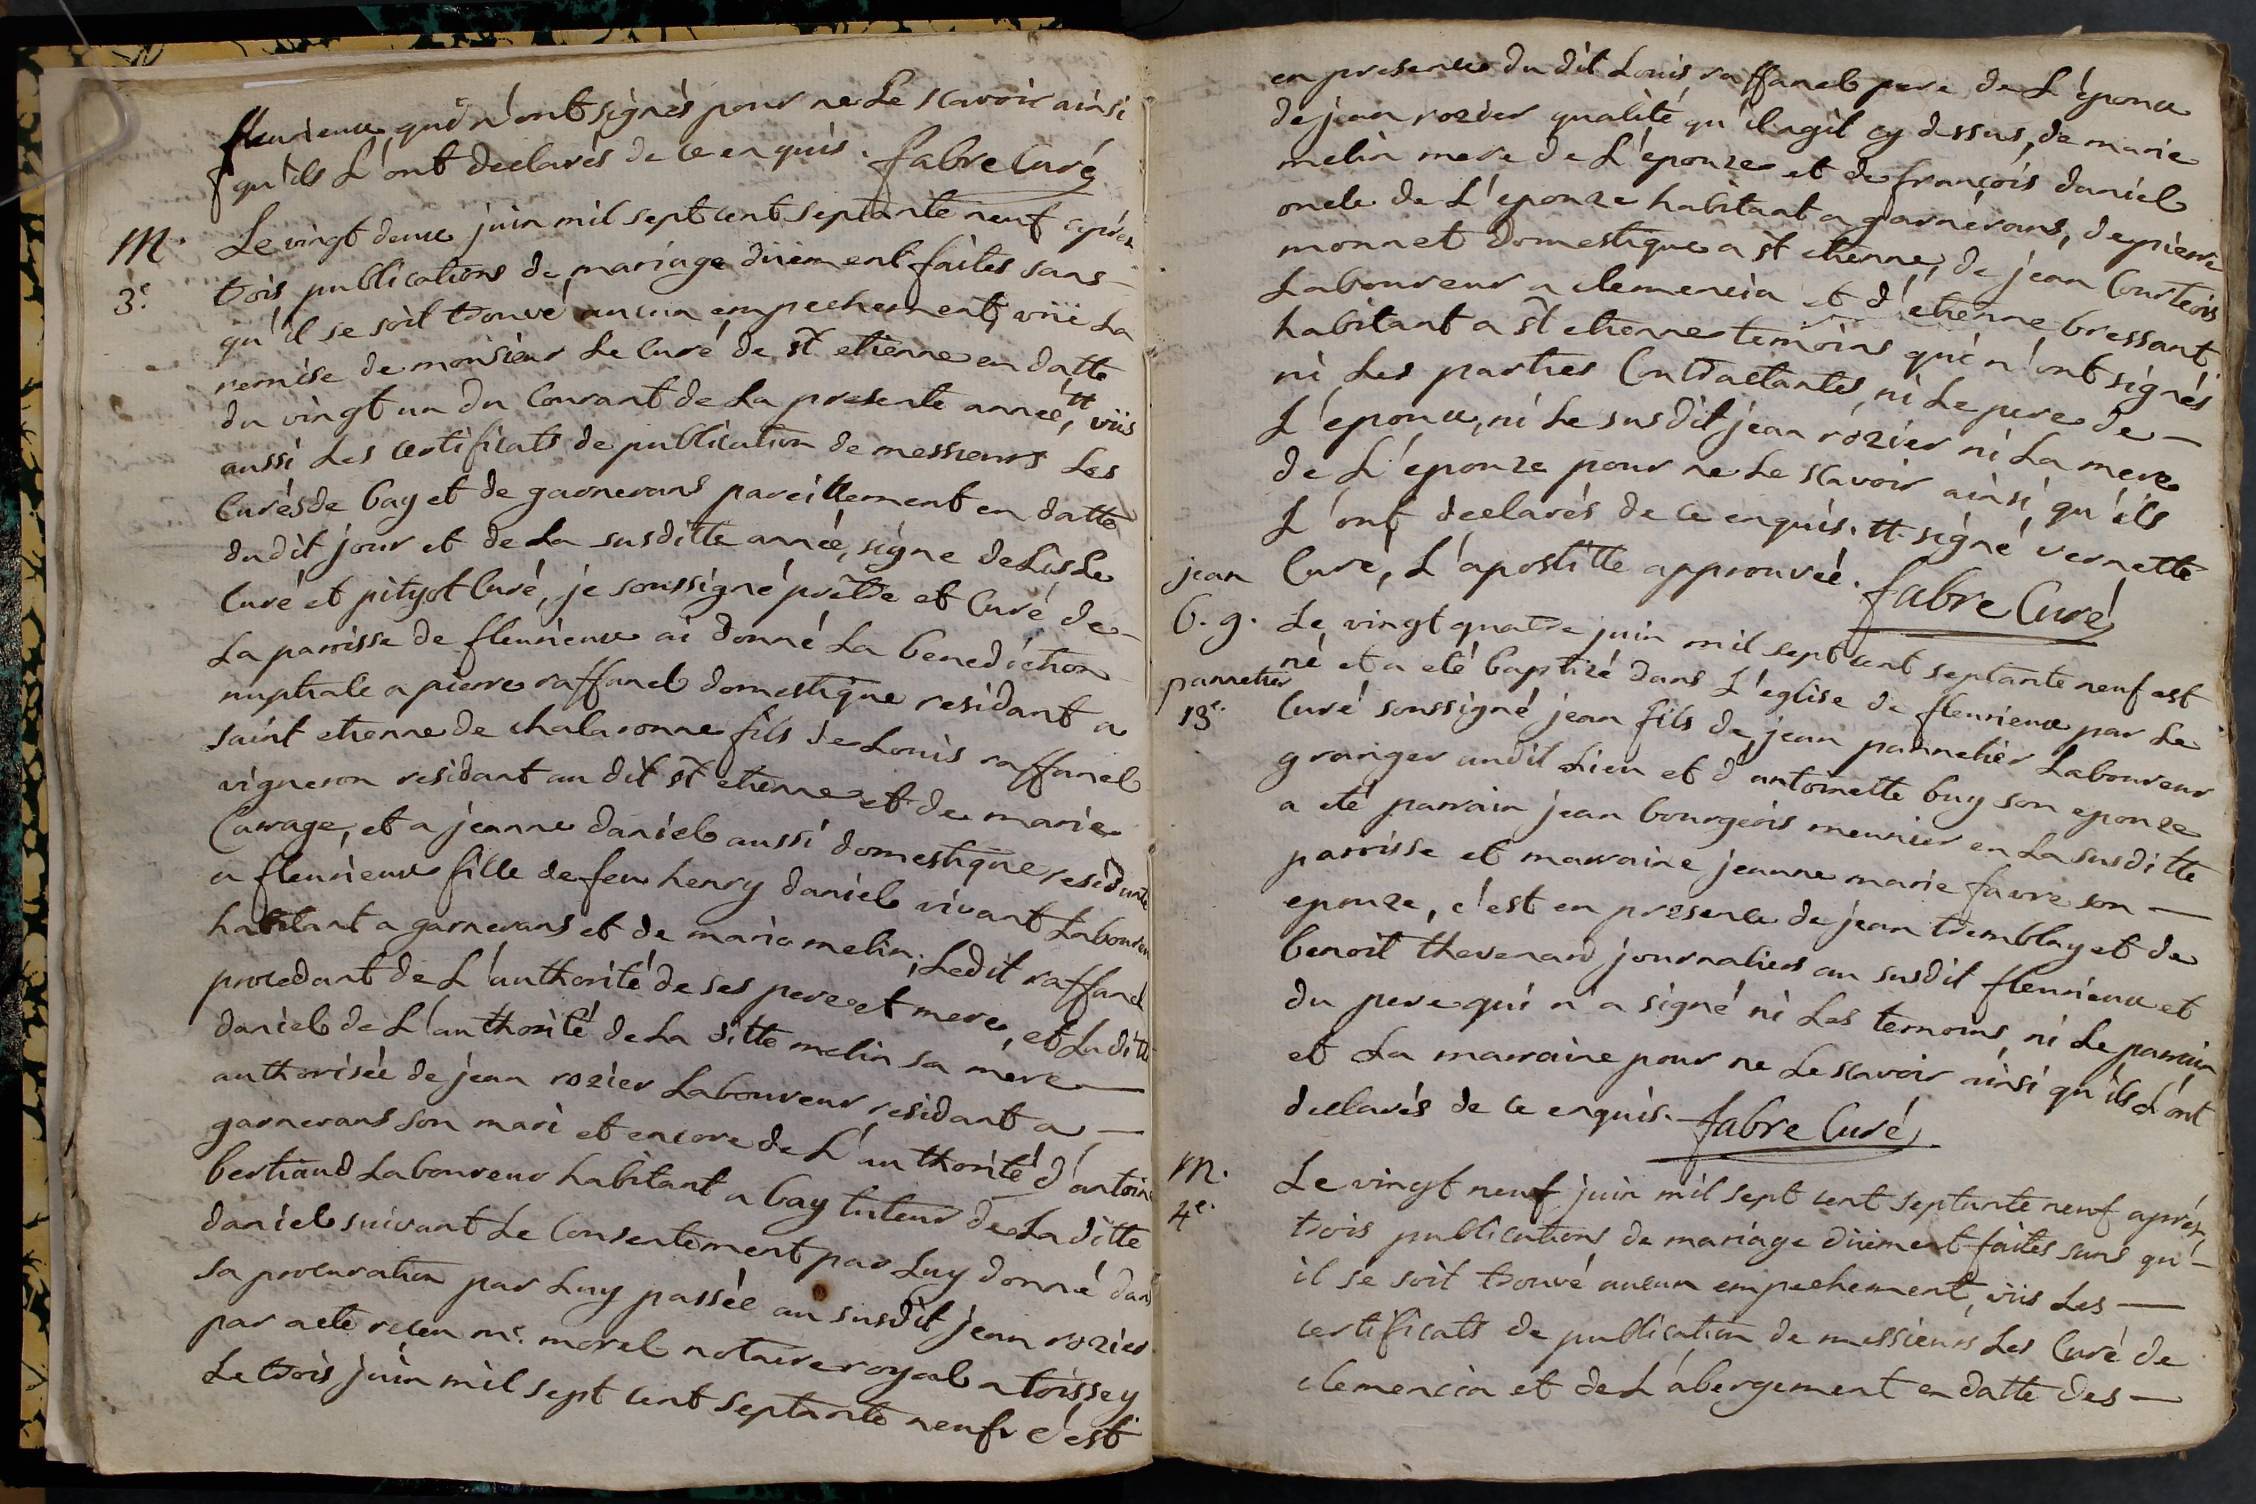 fleurieux qui n'ont signés pour ne Le scavoir ainsi
qu'ils L'ont declarés de ce enquis. fabre Curé
M. Le vingt deux juin mil sept cent septante neuf après
3e. trois publications de mariage düement faites sans
qu'il se soit trouvé aucun empechement, viie La
remise de monsieur Le Curé de st etienne en datte
du vingt un du Courant de La presente année, tt viis
aussi Les certificats de publication de messieurs Les
Curés de bay et de garnerans pareillement en datte
dudit jour et de La susditte année, signe deLisle
Curé et pityot Curé, je soussigné prêtre et Curé de
La parrisse de fleurieux ai donné La benediction
nuptiale a pierre raffanel domestique residant a
saint etienne de chalaronne fils de Louis raffanel
vigneron residant au dit st etienne et de marie
Carrage, et a jeanne daniel aussi domestique residante
a fleurieux fille de feu henry daniel vivant Laboureur
habitant a garnerans et de marie melin; Ledit raffanel
procedant de L'authorité de ses pere et mere, et La ditte
daniel de L'authorité de La ditte melin sa mere
authorisée de jean rozier Laboureur, residant a
garnerans son mari et encore de L'authorité d'antoine
bertraud Laboureur habitant a bay tuteur de La ditte
daniel suivant Le Consentement par Luy donné dans
sa procuration par Luy passée au susdit jean rozier
par acte recu me. morel notaire royal a toissey
Le trois juin mil sept cent septante neuf. c'est
en presence du dit Louis raffanel pere de L'epoux
de jean rozier qualité qu'il agit cy dessus, de marie
melin mere de L'epouze et de françois daniel
oncle de L'epouze habitant a garnérans, de pierre
monnet domestique a st etienne, de jean Courtois
Laboureur a clemencia et d'etienne bressant
habitant a st etienne temoins qui n'ont signés
ni Les parties Contractantes, ni Le pere de
L'epoux, ni Le susdit jean rozier ni La mere
de L'epouze pour ne Le scavoir ainsi qu'ils
L'ont declarés de ce enquis. tt. signé vernette
Curé, L'apostille approuvée. fabre Curé
jean
b. g.
pannetier
13e.
Le vingt quatre juin mil sept cent septante neuf est
né et a eté baptizé dans L'eglise de fleurieux par Le
Curé soussigné jean fils de jean pannetier Laboureur
granger audit Lieu et d'antoinette buy son epouze
a eté parrain jean bourgeois meunier en La susditte
parrisse et marraine jeanne marie favre son
epouze, c'est en presence de jean tremblay et de
benoit thevenard journaliers au susdit fleurieux et
du pere qui n'a signé ni Les temoins, ni Le parrain
et La marraine pour ne Le scavoir ainsi qu'ils L'ont
declarés de ce enquis. fabre Curé
M. Le vingt neuf juin mil sept cent septante neuf après
4e. trois publications de mariage düement faites sans qu'
il se soit trouvé aucun empechement, viis Les
certificats de publication de messieurs Les Curé de
clemencia et de L'abergement en datte des